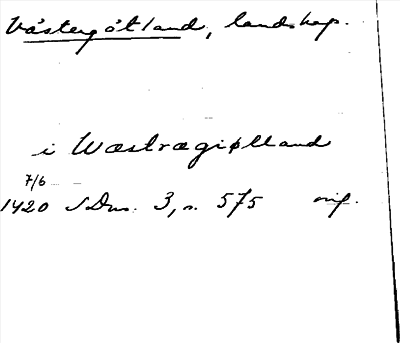 Västergötland, landskap.
i Wæstrægiøtland
7/6
1420 SDns. 3, s. 575 orig.